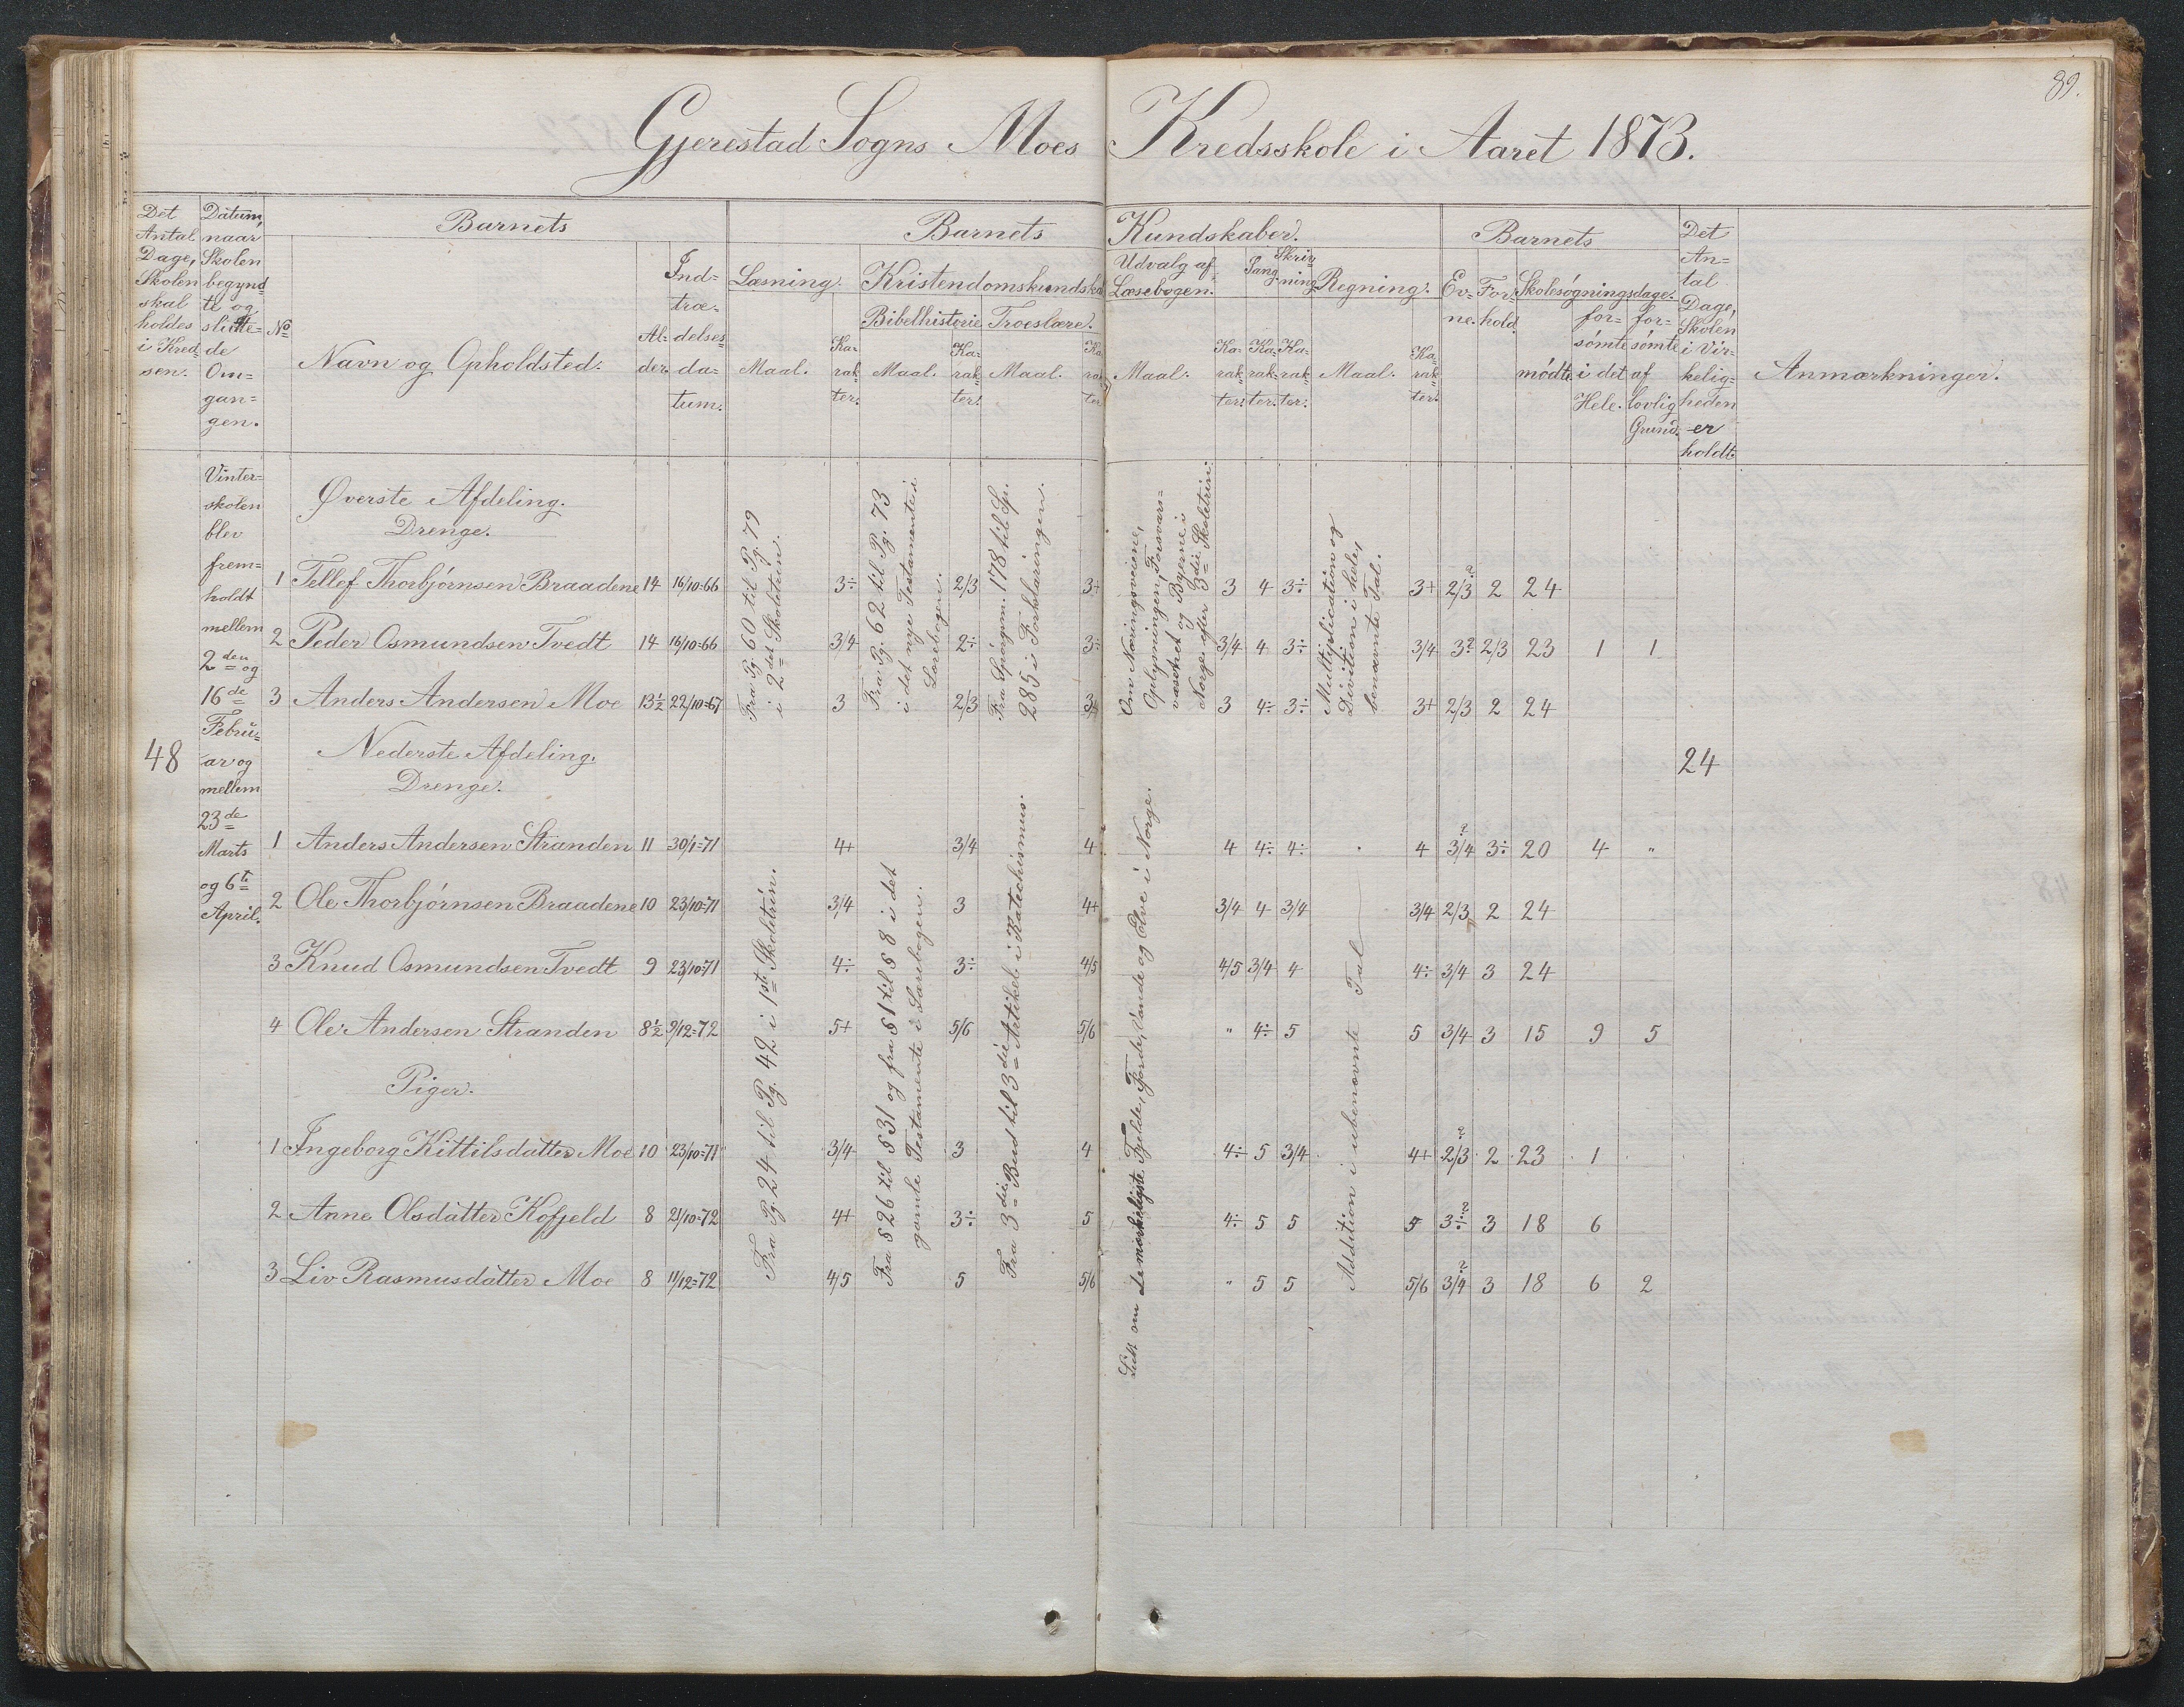 89.
Gjerestad Sogns Moes Kredsskole i Aaret 1873.
Det Antal Dage, Skolen skal holdes i Kredsen.
Datum, naar Skolen begyndte og sluttede Omgangen.
Barnets
No
Navn og Opholdsted.
Alder.
Indtrædelsesdatum.
Barnets Kundskaber.
Læsning.
Maal.
Karakter.
Kristendomskundska
Bibelhistorie
Maal.
Karakter.
Troeslære.
Maal.
Karakter
Udvalg af Læsebogen.
Maal.
Karakter.
Sang
Karakter.
Skrivning
Karakter.
Regning.
Maal.
Karakter.
Barnets
Evne.
Forhold.
Skolesøgningsdage.
mødte.
forsømte i det Hele.
forsømte af lovlig Grund.
Det Antal Dage, Skolen i Virkeligheden er holdt.
Anmærkninger.
48
Vinter=
skolen
blev
frem=
holdt
mellem
2den og
16de
Febru=
ar og
mellem
23de
Marts
og 6te
April.
Øverste Afdeling.
Drenge.
Fra Pg. 60 til Pg. 79
i 2det Skoletrin.
Fra Pg. 62 til Pg. 73
i det nye Testamente i
Lærebogen.
Fra Spørgsm. 178 til Sp.
285 i Forklaringen.
Om Næringsveiene,
Oplysningen, Forsvars=
væsenet og Byerne i
Norge efter 3die Skoletrin.
Multiplication og
Division i hele,
benævnte Tal.
1 Tellef Thorbjørnsen Braadene 14 16/10=66 3÷ 2/3 3+ 3 4 3÷ 3+ 2/3? 2 24
2 Peder Osmundsen Tvedt 14 16/10=66 3/4 2÷ 3÷ 3/4 4 3÷ 3/4 3? 2/3 23 1 1
3 Anders Andersen Moe 13½ 22/10=67 3 2/3 3 4÷ 3÷ 3+ 2/3 2 24
Nederste Afdeling.
Drenge.
24
Fra Pg. 24 til Pg. 42 i 1ste Skoletrin.
Fra § 26 til § 31 og fra § 1 til § 8 i det
gamle Testamente i Lærebogen.
Fra 3die Bud til 3die Artikel i Katechismus.
Lidt om de mærkeligste Fjelde, Fjorde, Vande og Elve i Norge.
Addition i ubenævnte Tal
1 Anders Andersen Stranden 11 30/1=71 4+ 3/4 4 4 4÷ 4÷ 4 3/4? 3÷ 20 4 "
2 Ole Thorbjørnsen Braadene 10 23/10=71 3/4 3 4+ 3/4 4 3/4 3/4 2/3 2 24
3 Knud Osmundsen Tvedt 9 23/10=71 4÷ 3÷ 4/5 4/5 3/4 4 4÷ 3/4 3 24
4 Ole Andersen Stranden 8½ 9/12=72 5+ 5/6 5/6 " 4÷ 5 5 3/4 3 15 9 5
Piger.
1 Ingeborg Kittilsdatter Moe 10 23/10=71 3/4 3 4 4÷ 5 3/4 4+ 2/3? 2 23 1
2 Anne Olsdatter Kofjeld 8 21/10=72 4+ 3÷ 5 4÷ 5 5 5 3÷? 3 18 6
3 Liv Rasmusdatter Moe 8 11/12=72 4/5 5 5/6 " 5 5 5/6 3/4? 3 18 6 2